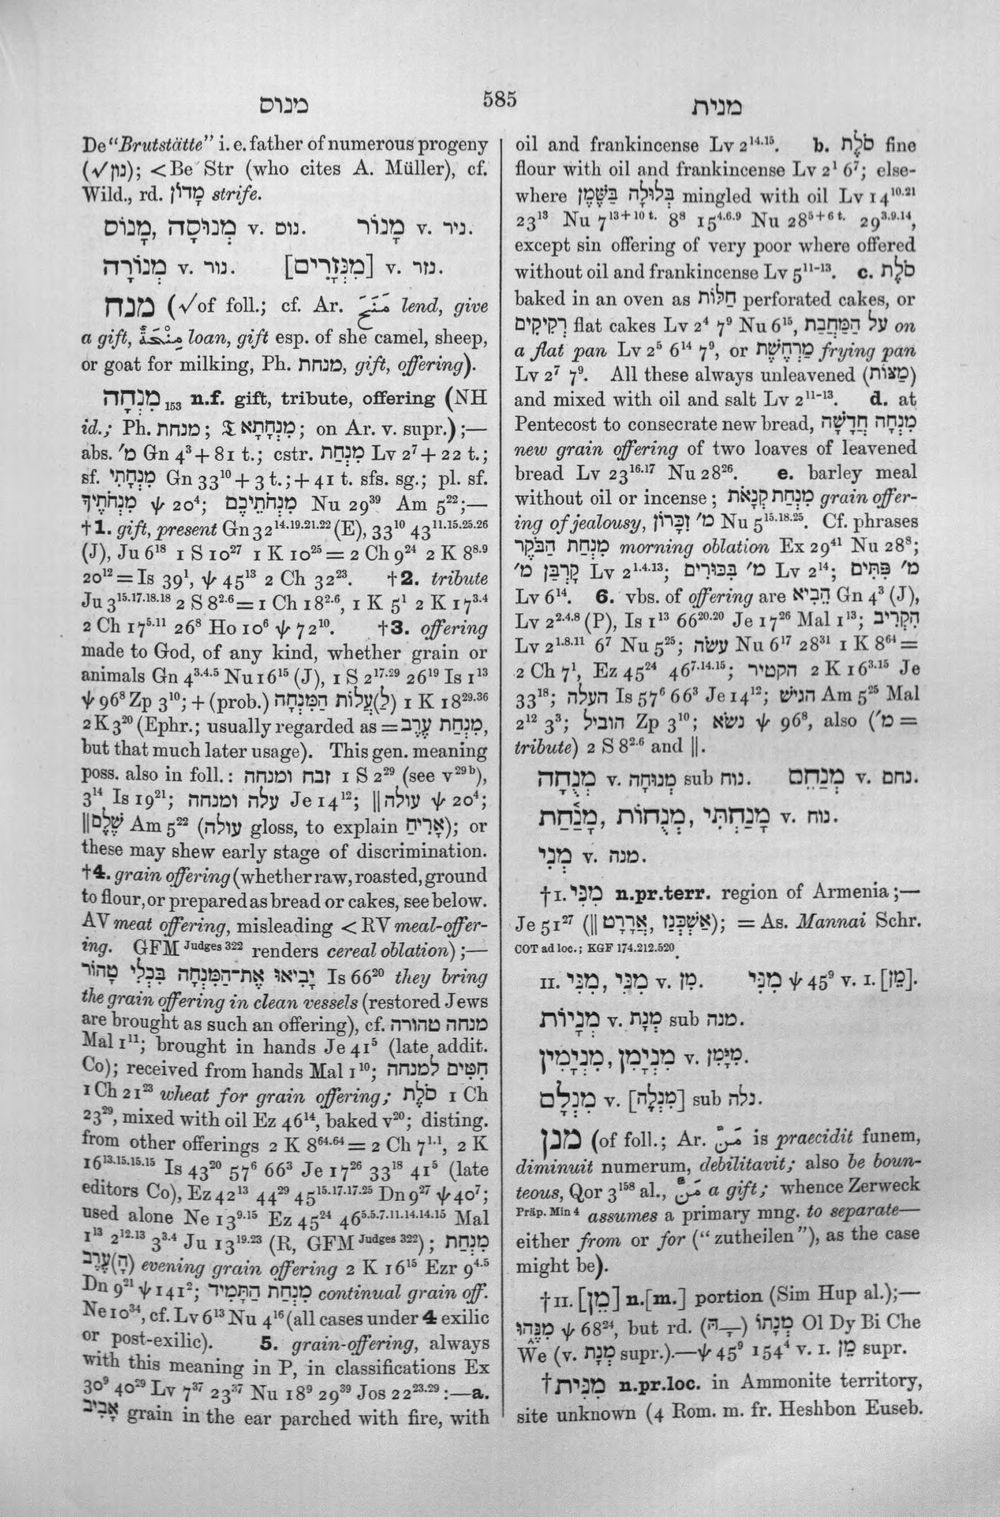 מנוס
585
מנית
De "Brutstätte" i. e. father of numerous progeny
(√נון); < Be Str (who cites A. Müller), cf.
Wild., rd. מָדוֹן strife.
מָנוֹס, מְנוּסָה v. נוס. מָנוֹר v. ניר.
מְנוֹרָה v. נור. [מִנְּזָרִים] v. נזר.
מנח (√of foll.; cf. Ar. مَنَحَ lend, give
a gift, مِنْحَةٌ loan, gift esp. of she camel, sheep,
or goat for milking, Ph. מנחת, gift, offering).
מִנְחָה 153 n.f. gift, tribute, offering (NH
id.; Ph. מנחת; 𝔗 מִנְחָתָא; on Ar. v. supr.);—
abs. מ׳ Gn 4³ + 81 t.; cstr. מִנְחַת Lv 2⁷ + 22 t.;
sf. מִנְחָתִי Gn 33¹⁰ + 3 t.; + 41 t. sfs. sg.; pl. sf.
מִנְחֹתֶיךָ ψ 20⁴; מִנְחֹתֵיכֶם Nu 29³⁹ Am 5²²;—
†1. gift, present Gn 32¹⁴·¹⁹·²¹·²² (E), 33¹⁰ 43¹¹·¹⁵·²⁵·²⁶
(J), Ju 6¹⁸ 1 S 10²⁷ 1 K 10²⁵ = 2 Ch 9²⁴ 2 K 8⁸·⁹
20¹² = Is 39¹, ψ 45¹³ 2 Ch 32²³. †2. tribute
Ju 3¹⁵·¹⁷·¹⁸·¹⁸ 2 S 8²·⁶ = 1 Ch 18²·⁶, 1 K 5¹ 2 K 17³·⁴
2 Ch 17⁵·¹¹ 26⁸ Ho 10⁶ ψ 72¹⁰. †3. offering
made to God, of any kind, whether grain or
animals Gn 4³·⁴·⁵ Nu 16¹⁵ (J), 1 S 2¹⁷·²⁹ 26¹⁹ Is 1¹³
ψ 96⁸ Zp 3¹⁰; + (prob.) (לַ)עֲלוֹת הַמִּנְחָה 1 K 18²⁹·³⁶
2 K 3²⁰ (Ephr.; usually regarded as = מִנְחַת עֶרֶב,
but that much later usage). This gen. meaning
poss. also in foll.: זבח ומנחה 1 S 2²⁹ (see v²⁹ᵇ),
3¹⁴ Is 19²¹; עלה ומנחה Je 14¹²; ‖ עולה ψ 20⁴;
‖ שֶׁלֶם Am 5²² (עולה gloss, to explain אָרִיחַ); or
these may shew early stage of discrimination.
†4. grain offering (whether raw, roasted, ground
to flour, or prepared as bread or cakes, see below.
AV meat offering, misleading < RV meal-offer-
ing. GFM Judges 322 renders cereal oblation);—
יָבִיאוּ אֶת־הַמִּנְחָה בִּכְלִי טָהוֹר Is 66²⁰ they bring
the grain offering in clean vessels (restored Jews
are brought as such an offering), cf. מנחה טהורה
Mal 1¹¹; brought in hands Je 41⁵ (late addit.
Co); received from hands Mal 1¹⁰; חִטִּים למנחה
1 Ch 21²³ wheat for grain offering; סֹלֶת 1 Ch
23²⁹, mixed with oil Ez 46¹⁴, baked v²⁰; disting.
from other offerings 2 K 8⁶⁴·⁶⁴ = 2 Ch 7¹·¹, 2 K
16¹³·¹⁵·¹⁵·¹⁵ Is 43²⁰ 57⁶ 66³ Je 17²⁶ 33¹⁸ 41⁵ (late
editors Co), Ez 42¹³ 44²⁹ 45¹⁵·¹⁷·¹⁷·²⁵ Dn 9²⁷ ψ 40⁷;
used alone Ne 13⁹·¹⁵ Ez 45²⁴ 46⁵·⁵·⁷·¹¹·¹⁴·¹⁴·¹⁵ Mal
1¹³ 2¹²·¹³ 3³·⁴ Ju 13¹⁹·²³ (R, GFM Judges 322); מִנְחַת
(הָ)עֶרֶב evening grain offering 2 K 16¹⁵ Ezr 9⁴·⁵
Dn 9²¹ ψ 141²; מִנְחַת הַתָּמִיד continual grain off.
Ne 10³⁴, cf. Lv 6¹³ Nu 4¹⁶ (all cases under 4 exilic
or post-exilic). 5. grain-offering, always
with this meaning in P, in classifications Ex
30⁹ 40²⁹ Lv 7³⁷ 23³⁷ Nu 18⁹ 29³⁹ Jos 22²³·²⁹:—a.
אָבִיב grain in the ear parched with fire, with
oil and frankincense Lv 2¹⁴·¹⁵. b. סֹלֶת fine
flour with oil and frankincense Lv 2¹ 6⁷; else-
where בְּלוּלָה בַּשֶּׁמֶן mingled with oil Lv 14¹⁰·²¹
23¹³ Nu 7¹³ ⁺ ¹⁰ ᵗ· 8⁸ 15⁴·⁶·⁹ Nu 28⁵ ⁺ ⁶ ᵗ· 29³·⁹·¹⁴,
except sin offering of very poor where offered
without oil and frankincense Lv 5¹¹⁻¹³. c. סֹלֶת
baked in an oven as חַלּוֹת perforated cakes, or
רְקִיקִים flat cakes Lv 2⁴ 7⁹ Nu 6¹⁵, עַל הַמַּחֲבַת on
a flat pan Lv 2⁵ 6¹⁴ 7⁹, or מַרְחֶשֶׁת frying pan
Lv 2⁷ 7⁹. All these always unleavened (מַצּוֹת)
and mixed with oil and salt Lv 2¹¹⁻¹³. d. at
Pentecost to consecrate new bread, מִנְחָה חֲדָשָׁה
new grain offering of two loaves of leavened
bread Lv 23¹⁶·¹⁷ Nu 28²⁶. e. barley meal
without oil or incense; מִנְחַת קְנָאֹת grain offer-
ing of jealousy, מ׳ זִכָּרוֹן Nu 5¹⁵·¹⁸·²⁵. Cf. phrases
מִנְחַת הַבֹּקֶר morning oblation Ex 29⁴¹ Nu 28⁸;
קָרְבַּן מ׳ Lv 2¹·⁴·¹³; מ׳ בִּכּוּרִים Lv 2¹⁴; מ׳ פִּתִּים
Lv 6¹⁴. 6. vbs. of offering are הֵבִיא Gn 4³ (J),
Lv 2²·⁴·⁸ (P), Is 1¹³ 66²⁰·²⁰ Je 17²⁶ Mal 1¹³; הִקְרִיב
Lv 2¹·⁸·¹¹ 6⁷ Nu 5²⁵; עשׂה Nu 6¹⁷ 28³¹ 1 K 8⁶⁴ =
2 Ch 7¹, Ez 45²⁴ 46⁷·¹⁴·¹⁵; הקטיר 2 K 16³·¹⁵ Je
33¹⁸; העלה Is 57⁶ 66³ Je 14¹²; הגישׁ Am 5²⁵ Mal
2¹² 3³; הוביל Zp 3¹⁰; נשׂא ψ 96⁸, also (מ׳ =
tribute) 2 S 8²·⁶ and ‖.
מְנֻחָה v. מְנוּחָה sub נוח. מְנַחֵם v. נחם.
מָנַחְתִּי, מְנֻחוֹת, מָנַ֫חַת v. נוח.
מְנִי v. מנה.
†I. מִנִּי n.pr.terr. region of Armenia;—
Je 51²⁷ (‖ אֲרָרָט, אַשְׁכְּנַז); = As. Mannai Schr.
COT ad loc.; KGF 174.212.520.
II. מִנִּי, מִנֵּי v. מִן. מִנִּי ψ 45⁹ v. I. [מֵן].
מְנָיוֹת v. מְנָת sub מנה.
מִנְיָמִן, מִנְיָמִין v. מִיָּמִן.
מִנְלָם v. [מִנְלֶה] sub נלה.
מנן (of foll.; Ar. مَنَّ is praecidit funem,
diminuit numerum, debilitavit; also be boun-
teous, Qor 3¹⁵⁸ al., مَنٌّ a gift; whence Zerweck
Präp. Min 4 assumes a primary mng. to separate—
either from or for ("zutheilen"), as the case
might be).
†II. [מֵן] n.[m.] portion (Sim Hup al.);—
מִנֵּהוּ ψ 68²⁴, but rd. (־ָהּ) מְנָתוֹ Ol Dy Bi Che
Ŵe (v. מְנָת supr.).—ψ 45⁹ 154⁴ v. I. מֵן supr.
†מִנִּית n.pr.loc. in Ammonite territory,
site unknown (4 Rom. m. fr. Heshbon Euseb.